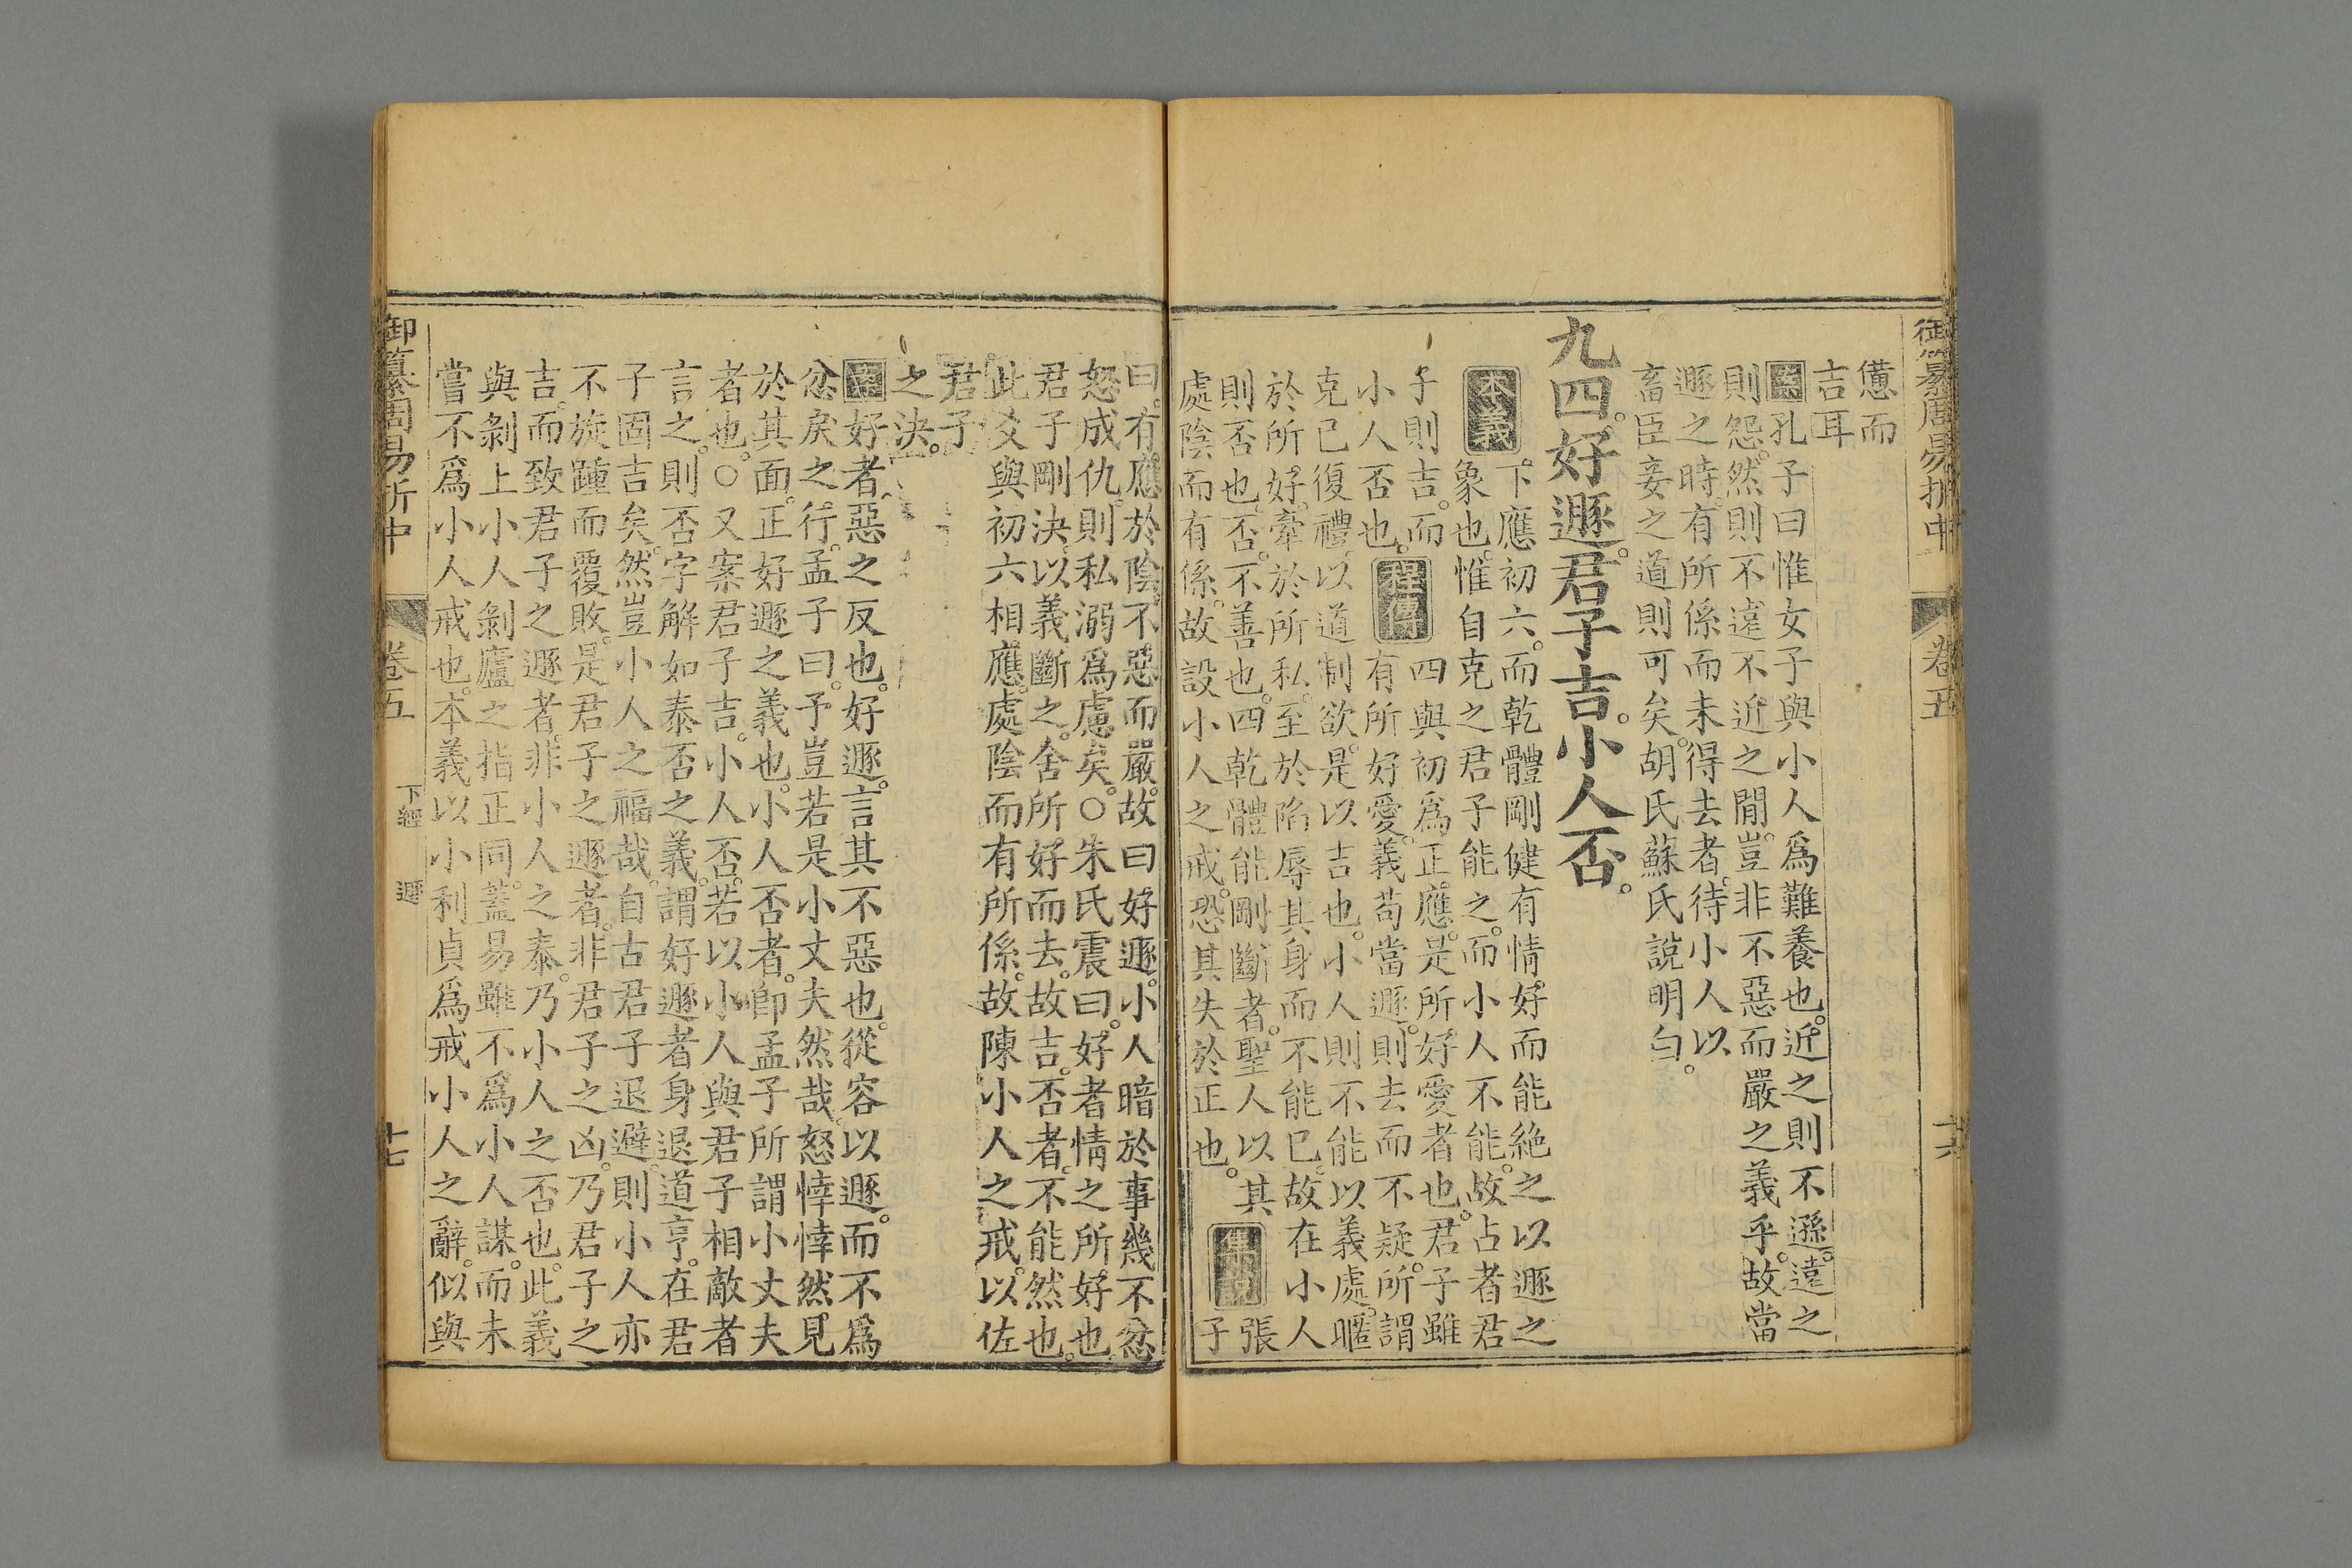 御纂周易折中 卷五 十六
憊而
吉耳
案孔子曰惟女子與小人爲難養也。近之則不遜。遠之
則怨。然則不遠不近之閒。豈非不惡而嚴之義乎。故當
遯之時。有所係而未得去者。待小人以
畜臣妾之道則可矣。胡氏蘇氏說明白。
九四。好遯。君子吉。小人否。
本義
下應初六。而乾體剛健有情好而能絶之以遯之
象也。惟自克之君子能之。而小人不能。故占者君
子則吉。而
小人否也。
程傳
四與初爲正應。是所好愛者也。君子雖
有所好愛。義苟當遯。則去而不疑。所謂
克己復禮。以道制欲。是以吉也。小人則不能以義處。暱
於所好。牽於所私。至於陷辱其身而不能已。故在小人
則否也。否。不善也。四乾體能剛斷者。聖人以其
處陰而有係。故設小人之戒。恐其失於正也。
集說
張
子
曰。有應於陰。不惡而嚴。故曰好遯。小人暗於事幾。不忿
怒成仇。則私溺爲慮矣。○朱氏震曰。好者情之所好也。
君子剛決。以義斷之。舍所好而去。故吉。否者。不能然也。
此爻與初六相應。處陰而有所係。故陳小人之戒。以佐
君子
之決。
案好者。惡之反也。好遯。言其不惡也。從容以遯。而不爲
忿戾之行。孟子曰。予豈若是小丈夫然哉。怒悻悻然見
於其面。正好遯之義也。小人否者。卽孟子所謂小丈夫
者也。○又案君子吉。小人否。若以小人與君子相敵者
言之。則否字解如泰否之義。謂好遯者身退道亨。在君
子固吉矣。然豈小人之福哉。自古君子退避。則小人亦
不旋踵而覆敗。是君子之遯者。非君子之凶。乃君子之
吉。而致君子之遯者。非小人之泰。乃小人之否也。此義
與剝上小人剝廬之指正同。蓋易雖不爲小人謀。而未
嘗不爲小人戒也。本義以小利貞爲戒小人之辭。似與
御纂周易折中 卷五 下經 遯 十七